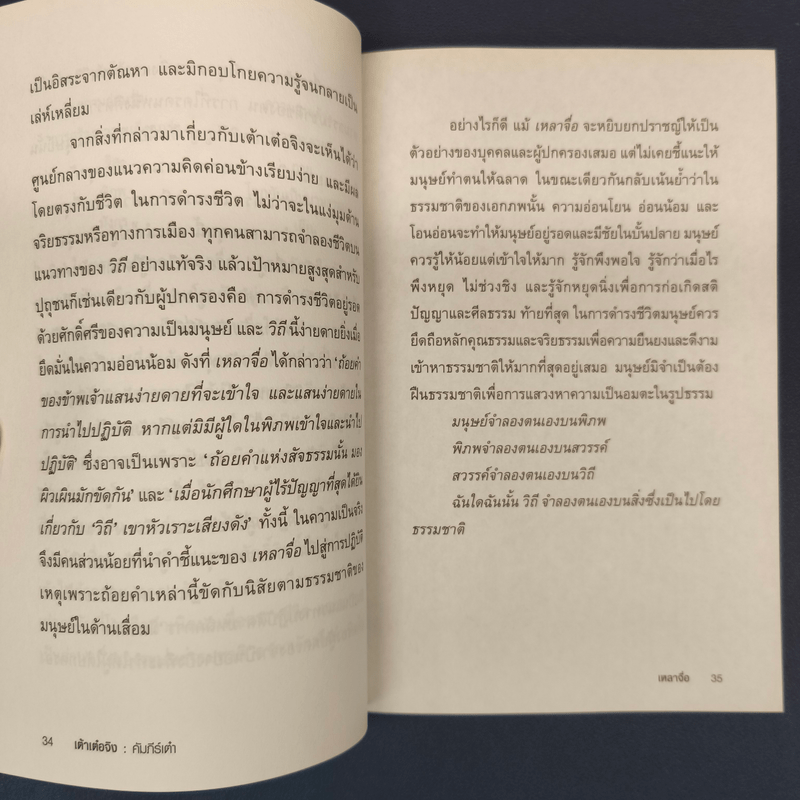 เป็นอิสระจากตัณหา และมิกอบโกยความรู้จนกลายเป็น
เล่ห์เหลี่ยม
จากสิ่งที่กล่าวมาเกี่ยวกับเต้าเต๋อจิงจะเห็นได้ว่า
ศูนย์กลางของแนวความคิดค่อนข้างเรียบง่าย และมีผล
โดยตรงกับชีวิต ในการดำรงชีวิต ไม่ว่าจะในแง่มุมด้าน
จริยธรรมหรือทางการเมือง ทุกคนสามารถจำลองชีวิตบน
แนวทางของ วิถี อย่างแท้จริง แล้วเป้าหมายสูงสุดสำหรับ
ปุถุชนก็เช่นเดียวกับผู้ปกครองคือ การดำรงชีวิตอยู่รอด
ด้วยศักดิ์ศรีของความเป็นมนุษย์ และ วิถี นี้ง่ายดายยิ่งเมื่อ
ยึดมั่นในความอ่อนน้อม ดังที่ เหลาจื่อ ได้กล่าวว่า 'ถ้อยคำ
ของข้าพเจ้าแสนง่ายดายที่จะเข้าใจ และแสนง่ายดายใน
การนำไปปฏิบัติ หากแต่มิมีผู้ใดในพิภพเข้าใจและนำไป
ปฏิบัติ' ซึ่งอาจเป็นเพราะ 'ถ้อยคำแห่งสัจธรรมนั้น มอง
ผิวเผินมักขัดกัน' และ 'เมื่อนักศึกษาผู้ไร้ปัญญาที่สุดได้ยิน
เกี่ยวกับ 'วิถี' เขาหัวเราะเสียงดัง' ทั้งนี้ ในความเป็นจริง
จึงมีคนส่วนน้อยที่นำคำชี้แนะของ เหลาจื่อ ไปสู่การปฏิบัติ
เหตุเพราะถ้อยคำเหล่านี้ขัดกับนิสัยตามธรรมชาติของ
มนุษย์ในด้านเสื่อม
34 เต้าเต๋อจิง : คัมภีร์เต๋า
อย่างไรก็ดี แม้ เหลาจื่อ จะหยิบยกปราชญ์ให้เป็น
ตัวอย่างของบุคคลและผู้ปกครองเสมอ แต่ไม่เคยชี้แนะให้
มนุษย์ทำตนให้ฉลาด ในขณะเดียวกันกลับเน้นย้ำว่าใน
ธรรมชาติของเอกภพนั้น ความอ่อนโยน อ่อนน้อม และ
โอนอ่อนจะทำให้มนุษย์อยู่รอดและมีชัยในบั้นปลาย มนุษย์
ควรรู้ให้น้อยแต่เข้าใจให้มาก รู้จักพึงพอใจ รู้จักว่าเมื่อไร
พึงหยุด ไม่ช่วงชิง และรู้จักหยุดนิ่งเพื่อการก่อเกิดสติ
ปัญญาและศีลธรรม ท้ายที่สุด ในการดำรงชีวิตมนุษย์ควร
ยึดถือหลักคุณธรรมและจริยธรรมเพื่อความยืนยงและดีงาม
เข้าหาธรรมชาติให้มากที่สุดอยู่เสมอ มนุษย์มิจำเป็นต้อง
ฝืนธรรมชาติเพื่อการแสวงหาความเป็นอมตะในรูปธรรม
มนุษย์จำลองตนเองบนพิภพ
พิภพจำลองตนเองบนสวรรค์
สวรรค์จำลองตนเองบนวิถี
ฉันใดฉันนั้น วิถี จำลองตนเองบนสิ่งซึ่งเป็นไปโดย
ธรรมชาติ
เหลาจื่อ 35